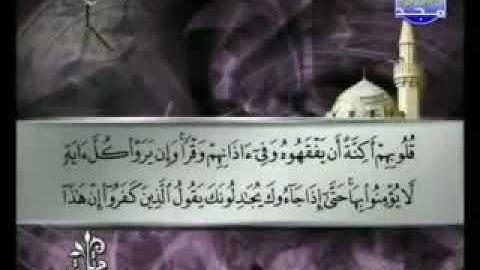 المجد
قُلُوبِهِمْ أَكِنَّةً أَن يَفْقَهُوهُ وَفِىٓ ءَاذَانِهِمْ وَقْرًا ۚ وَإِن يَرَوْا۟ كُلَّ ءَايَةٍ
لَّا يُؤْمِنُوا۟ بِهَا ۚ حَتَّىٰٓ إِذَا جَآءُوكَ يُجَـٰدِلُونَكَ يَقُولُ ٱلَّذِينَ كَفَرُوٓا۟ إِنْ هَـٰذَآ